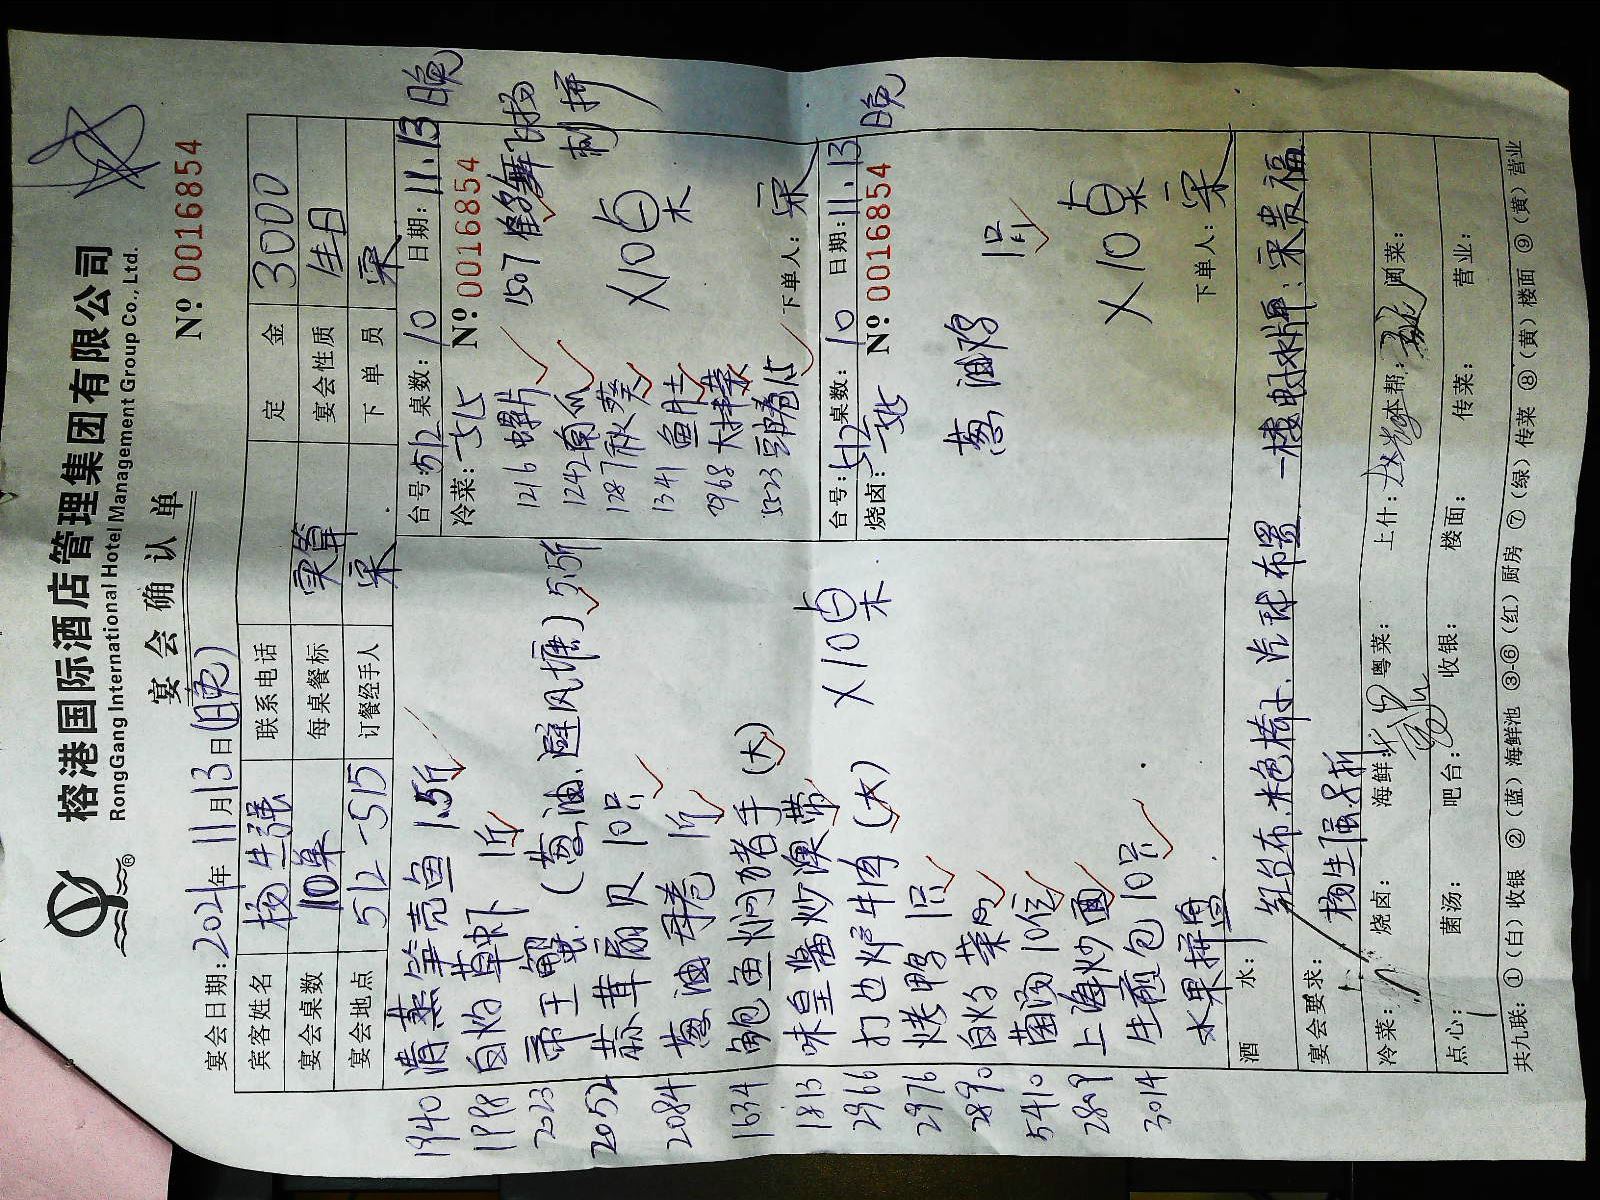 榕港国际酒店管理集团有限公司
RongGang International Hotel Management Group Co., Ltd.
宴会确认单
宴会日期: 2021年11月13日(晚)
Nº 0016854
宾客姓名 杨生强 联系电话 定金 3000
宴会桌数 10桌 每桌餐标 实算 宴会性质 生日
宴会地点 512-515 订餐经手人 宋 下单员 宋
1940 清蒸笋壳鱼 1.5斤
1998 白灼草虾 1斤
2023 帝王蟹 (葱油.避风塘) 5.5斤
2052 蒜茸扇贝 10只
2084 葱油 1斤
1634 鲍鱼焖猪手 (大)
1813 味皇酱炒澳带
2966 打边炉牛肉 (大)
2976 烤鸭 1只
2890 白灼菜
5410 菌汤 10位
2809 上海炒面
3014 生煎包 10只
水果拼盘
X10桌
台号: 512 桌数: 10 日期: 11.13 晚
冷菜: Nº 0016854
1216 螺片
1242 南瓜
1287 秋葵
1341 鱼肚
2968
5523 豆腐
1507
刺拼
X10桌
下单人: 宋
台号: 512 桌数: 10 日期: 11.13 晚
烧卤: Nº 0016854
葱油鸡 1只
X10桌
下单人: 宋
酒水: 红台布.米色椅子、汽球布置 一楼
宴会要求: 杨生强
冷菜: 烧卤: 海鲜: 粤菜: 上什: 本帮: 闽菜:
点心: 菌汤: 吧台: 收银: 楼面: 传菜: 营业:
共九联: ①(白)收银 ②(蓝)海鲜池 ③-⑥(红)厨房 ⑦(绿)传菜 ⑧(黄)楼面 ⑨(黄)营业